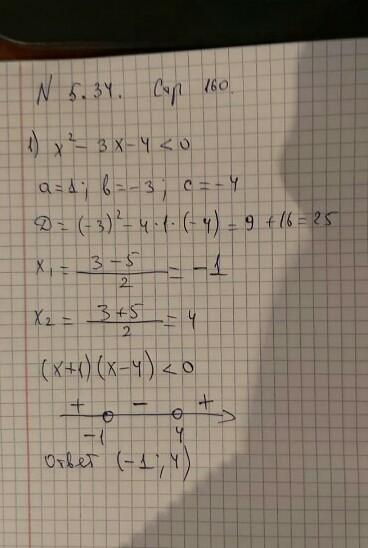 N 5.34. Стр 160.
1) x² - 3x - 4 < 0
a = 1; b = -3; c = -4
D = (-3)² - 4·1·(-4) = 9 + 16 = 25
x₁ = (3 - 5)/2 = -1
x₂ = (3 + 5)/2 = 4
(x+1)(x-4) < 0
+ - +
-1 4
Ответ (-1; 4)